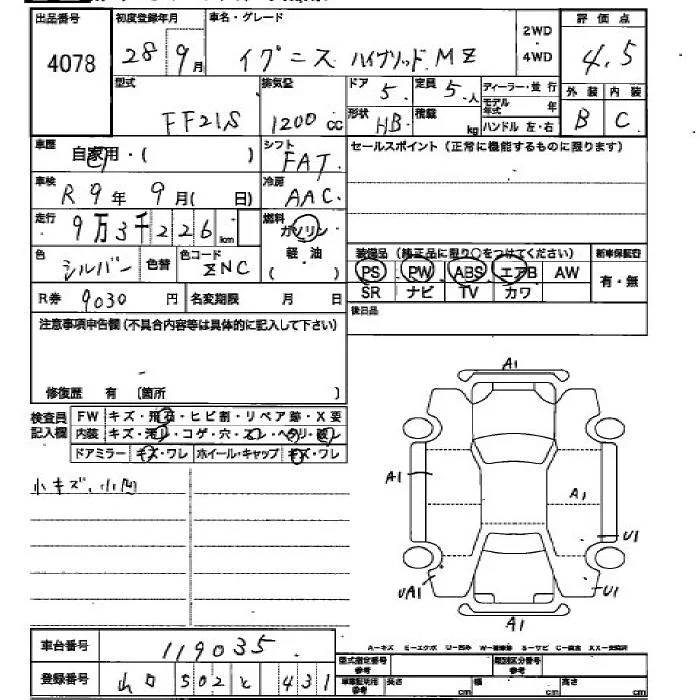 出品番号 初度登録年月 車名・グレード 2WD・4WD 評価点
4078 28 9月 イグニス ハイブリッド MZ 4.5
型式 排気量 ドア 定員 ディーラー・並行 外装 内装
FF21S 1200cc 5 5人 モデル年式 年 B C
形状 HB 積載 kg ハンドル 左・右
車歴 自家用・( ) シフト FAT セールスポイント (正常に機能するものに限ります)
車検 R9年9月( 日) 冷房 AAC
走行 9万3千226km 燃料 ガソリン 軽油 ( )
色 シルバー 色替 色コード ZNC
装備品 (純正品に限り○をつけてください) 新車保証書
PS PW ABS エアB AW 有・無
SR ナビ TV カワ
R券 9030円 名変期限 月 日 後日品
注意事項申告欄 (不具合内容等は具体的に記入して下さい)
修復歴 有 〔箇所 〕
検査員記入欄 FW キズ・飛石・ヒビ割・リペア跡・X要
内装 キズ・汚レ・コゲ・穴・スレ・ヘタリ・破レ
ドアミラー キズ・ワレ ホイール・キャップ キズ・ワレ
小キズ、小凹
A1
A1
A1
U1
UA1
U1
A1
車台番号 119035
登録番号 山口 502 と 431
A…キズ E…エクボ U…凹み W…補修跡 S…サビ C…腐食 XX…交換済
型式指定番号 参考 類別区分番号 参考
車庫証明用 参考 長さ cm 幅 cm 高さ cm